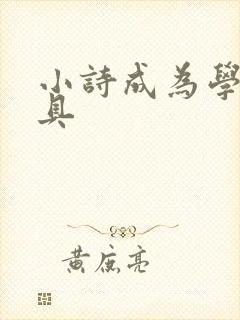 小詩成為學
具
黃庭亮